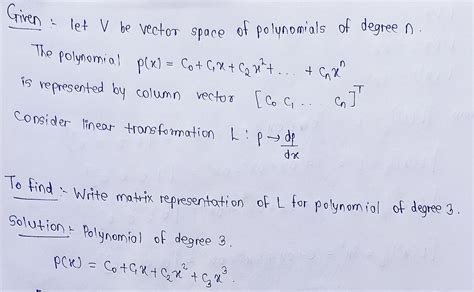 Given :- let V be vector space of polynomials of degree n.
The polynomial p(x) = C₀ + C₁x + C₂x² + . . . + Cₙxⁿ
is represented by column vector [C₀ C₁ . . . Cₙ]ᵀ
Consider linear transformation L : p → dp/dx
To find :- Write matrix representation of L for polynomial of degree 3.
Solution :- Polynomial of degree 3.
P(x) = C₀ + C₁x + C₂x² + C₃x³.